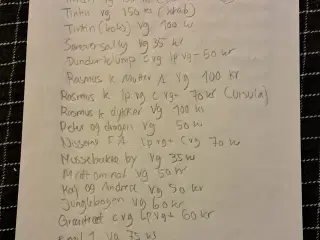 Tintin vg 150 kr
Tintin (koks) vg 100 kr
vg 35 kr
Dunderklump cvg lp vg- 50 kr
Rasmus k vg 100 kr
Rasmus k lp vg cvg+ 70 kr (Ursula)
Rasmus k dykker vg 100 kr
Peter og dragen vg 50 kr
Nisserne lp vg+ cvg 70 kr
Mussebakke by vg 35 kr
vg 50 kr
Kaj og Andrea vg 50 kr
Junglebogen vg 60 kr
cvg lp vg+ 60 kr
Emil 1 vg 75 kr